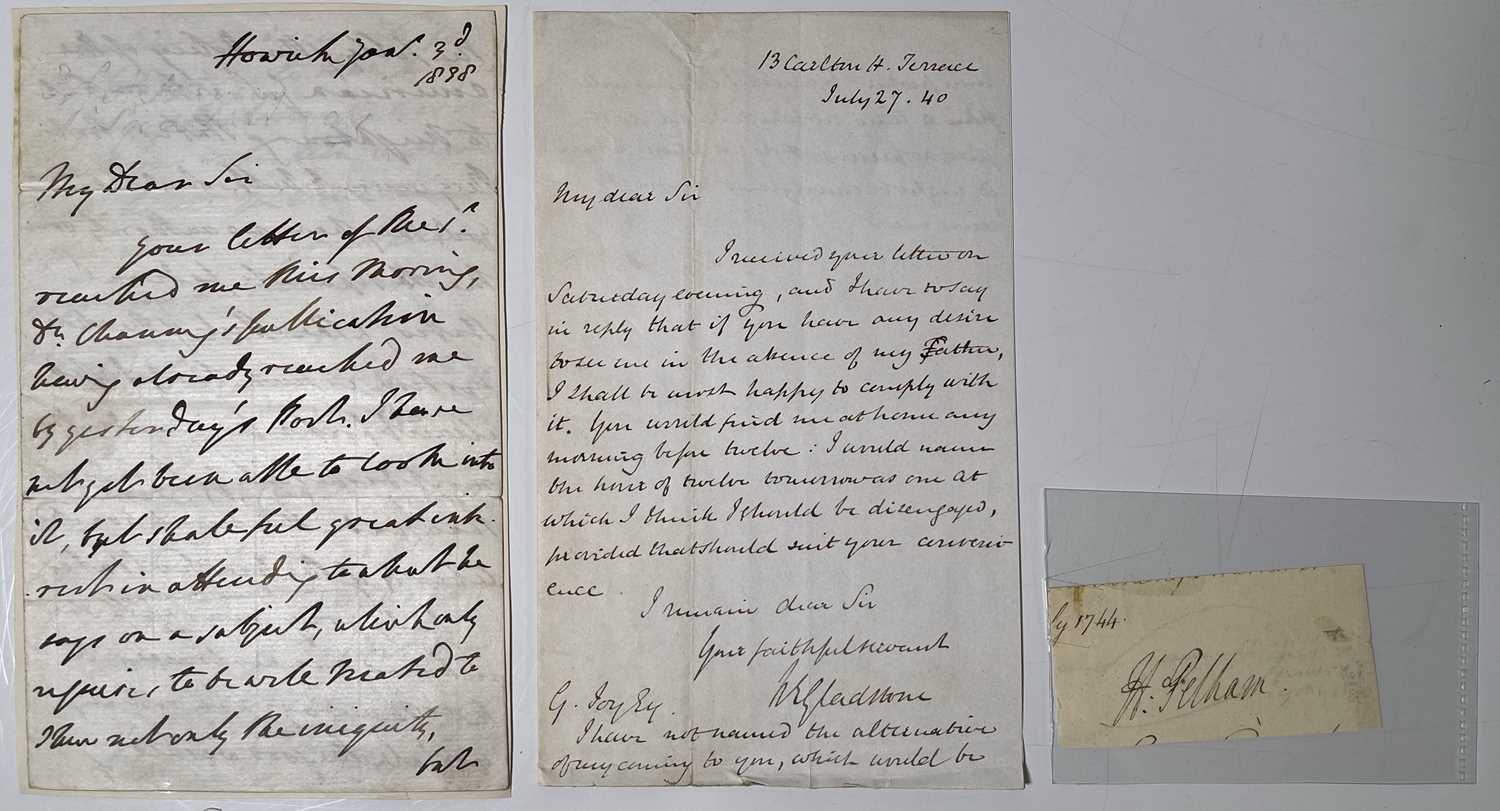 Howick Jany. 3d.
1838
My Dear Sir
Your letter of the 1st.
reached me this Morning,
Dr. Channing's publication
having already reached me
by yesterday's Post. I have
not yet been able to look into
it, but shall feel great inte-
rest in attending to what he
says on a subject, which only
requires to be well treated to
shew not only the iniquity,
but
13 Carlton H. Terrace
July 27. 40
My dear Sir
I received your letter on
Saturday evening, and I have to say
in reply that if you have any desire
to see me in the absence of my Father,
I shall be most happy to comply with
it. You would find me at home any
morning before twelve: I would name
the hour of twelve tomorrow as one at
which I think I should be disengaged,
provided that should suit your conveni-
ence.
I remain dear Sir
Your faithful servant
WEGladstone
G. Joy Esq.
I have not named the alternative
of my coming to you, which would be
ly 1744.
H. Pelham.